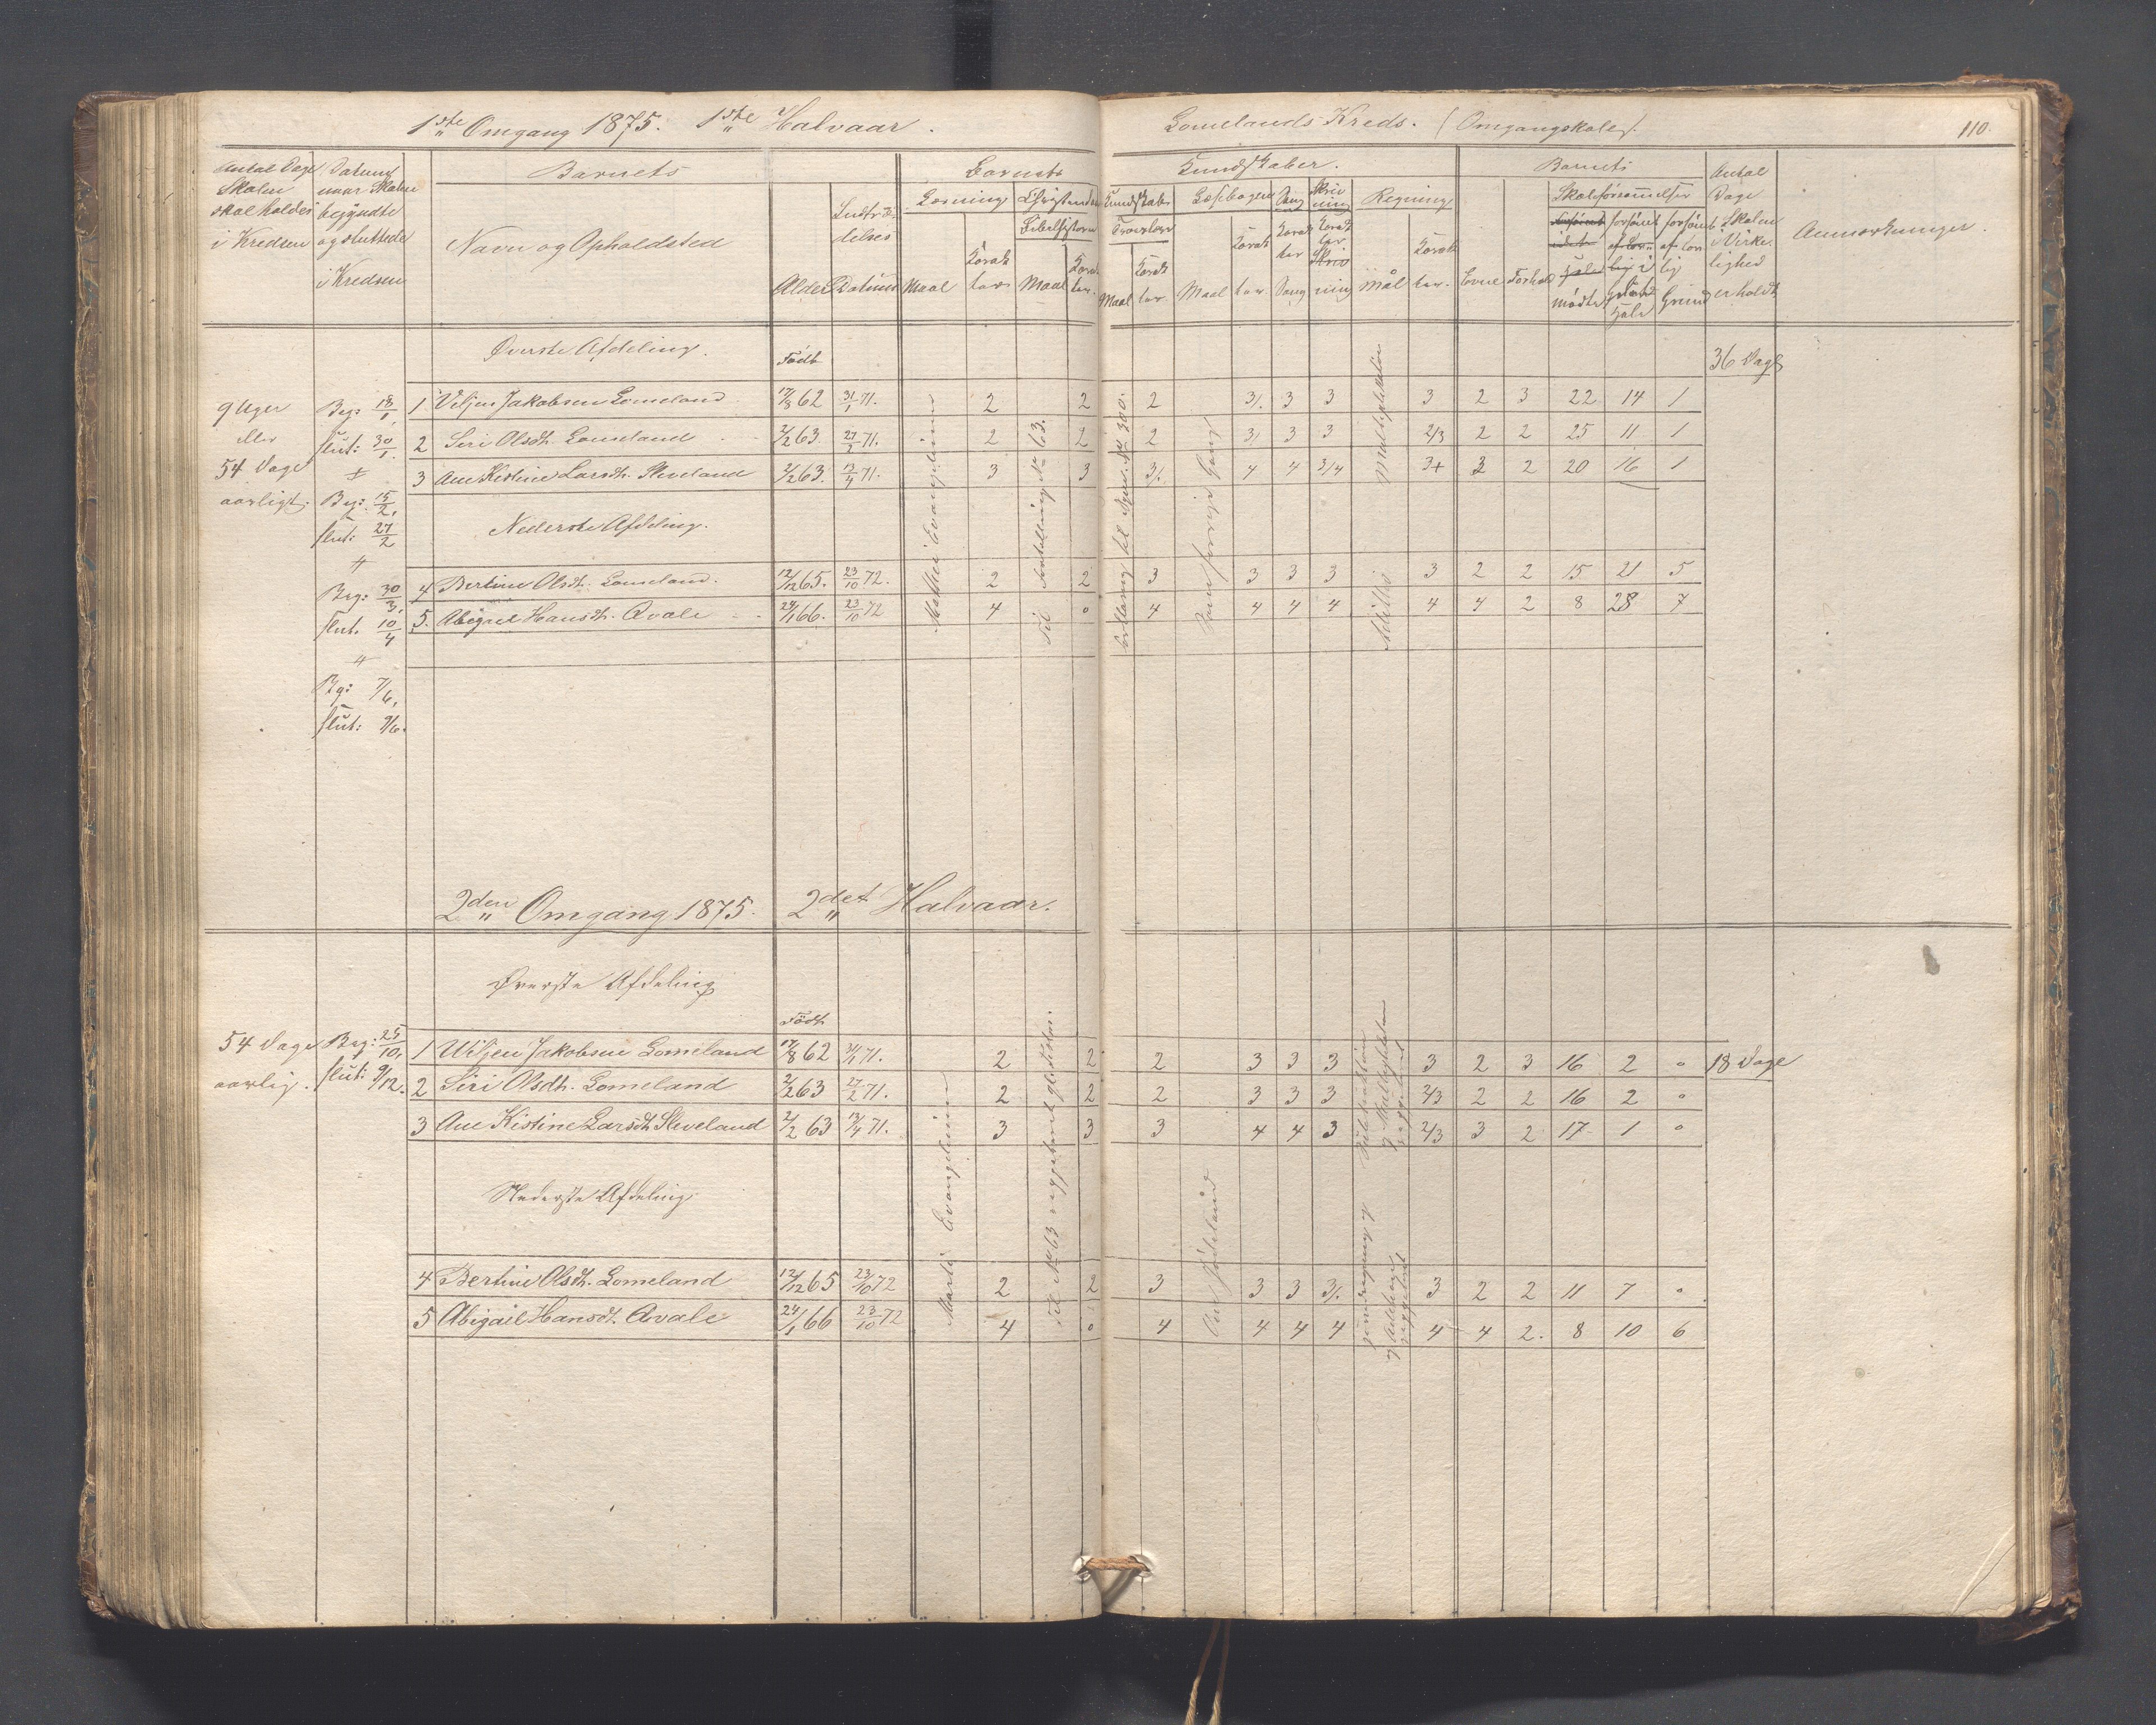 1ste Omgang 1875. 1ste Halvaar.
Lomelands Kreds. (Omgangskole).
110.
Antal Dage Skolen skal holdes i Kredsen
Datum naar Skolen begyndte og sluttede i Kredsen
Barnets
Navn og Opholdsted
Alder
Indtrædelses Datum
Barnets
Kundskaber.
Læsning
Maal
Karakter
Christendoms
Kundskab
Bibelhistorie
Maal
Karakter.
Troeslære
Maal
Karakter.
Læsebogen
Maal
Karakter
Sang
Karakter
Sang
Skrivning
Karakter.
Regning
Mål
Karakter.
Barnets
Evne
Forhold
Skoleforsømmelser
mødte
forsømt
hele
forsømt af lovlig Grund
Antal Dage Skolen i Virkelighed er holdt
Anmærkninger.
Øverste Afdeling.
Født
36 Dage
9 Uger eller 54 Dage aarligt.
Beg: 18/1, slut: 30/1.
Beg: 15/2, slut: 27/2
Beg: 30/3, slut. 10/4
Beg: 7/6, slut: 9/6.
1 Viljen Jakobsen Lomeland 17/8 62 31/1 71. 2 2 2 3/. 3 3 3 2 3 22 14 1
2 Siri Olsdt. Lomeland 2/2 63 27/2 71. 2 2 2 3/. 3 3 2/3 2 2 25 11 1
3 Ane Kistine Larsdt. Sleveland 2/2 63. 13/4 71. 3 3 3/. 4 4 3/4 3+ 3 2 20 16 1
Nederste Afdeling.
4 Bertine Olsdt. Lomeland. 12/12 65. 23/10 72. 2 2 3 3 3 3 3 2 2 15 21 5
5. Abigael Hansdt. Avale 24/1 66. 23/10 72 4 0 4 4 4 4 4 4 2 8 28 7
Mathei Evangelium
Til Fortælling No 63.
Som forrige Gang
Multiplikation
Addition
2den Omgang 1875. 2det Halvaar.
Øverste Afdeling
Født
54 Dage aarlig.
Beg: 25/10, slut: 9/12.
1 Viljen Jakobsen Lomeland 17/8 62 31/1 71. 2 2 2 3 3 3 3 2 3 16 2 0 18 Dage
2 Siri Olsdt. Lomeland 2/2 63 27/2 71. 2 2 2 3 3 3 2/3 2 2 16 2 0
3 Ane Kistine Larsdt. Sleveland 2/2 63 13/4 71. 3 3 3 4 4 3 2/3 3 2 17 1 0
Nederste Afdeling
4 Bertine Olsdt. Lomeland 12/12 65 23/10 72 2 2 3 3 3 3/. 3 2 2 11 7 0
5 Abigail Hansdt. Avale 24/1 66 23/10 72 4 0 4 4 4 4 4 4 2. 8 10 6
Marci Evangelium